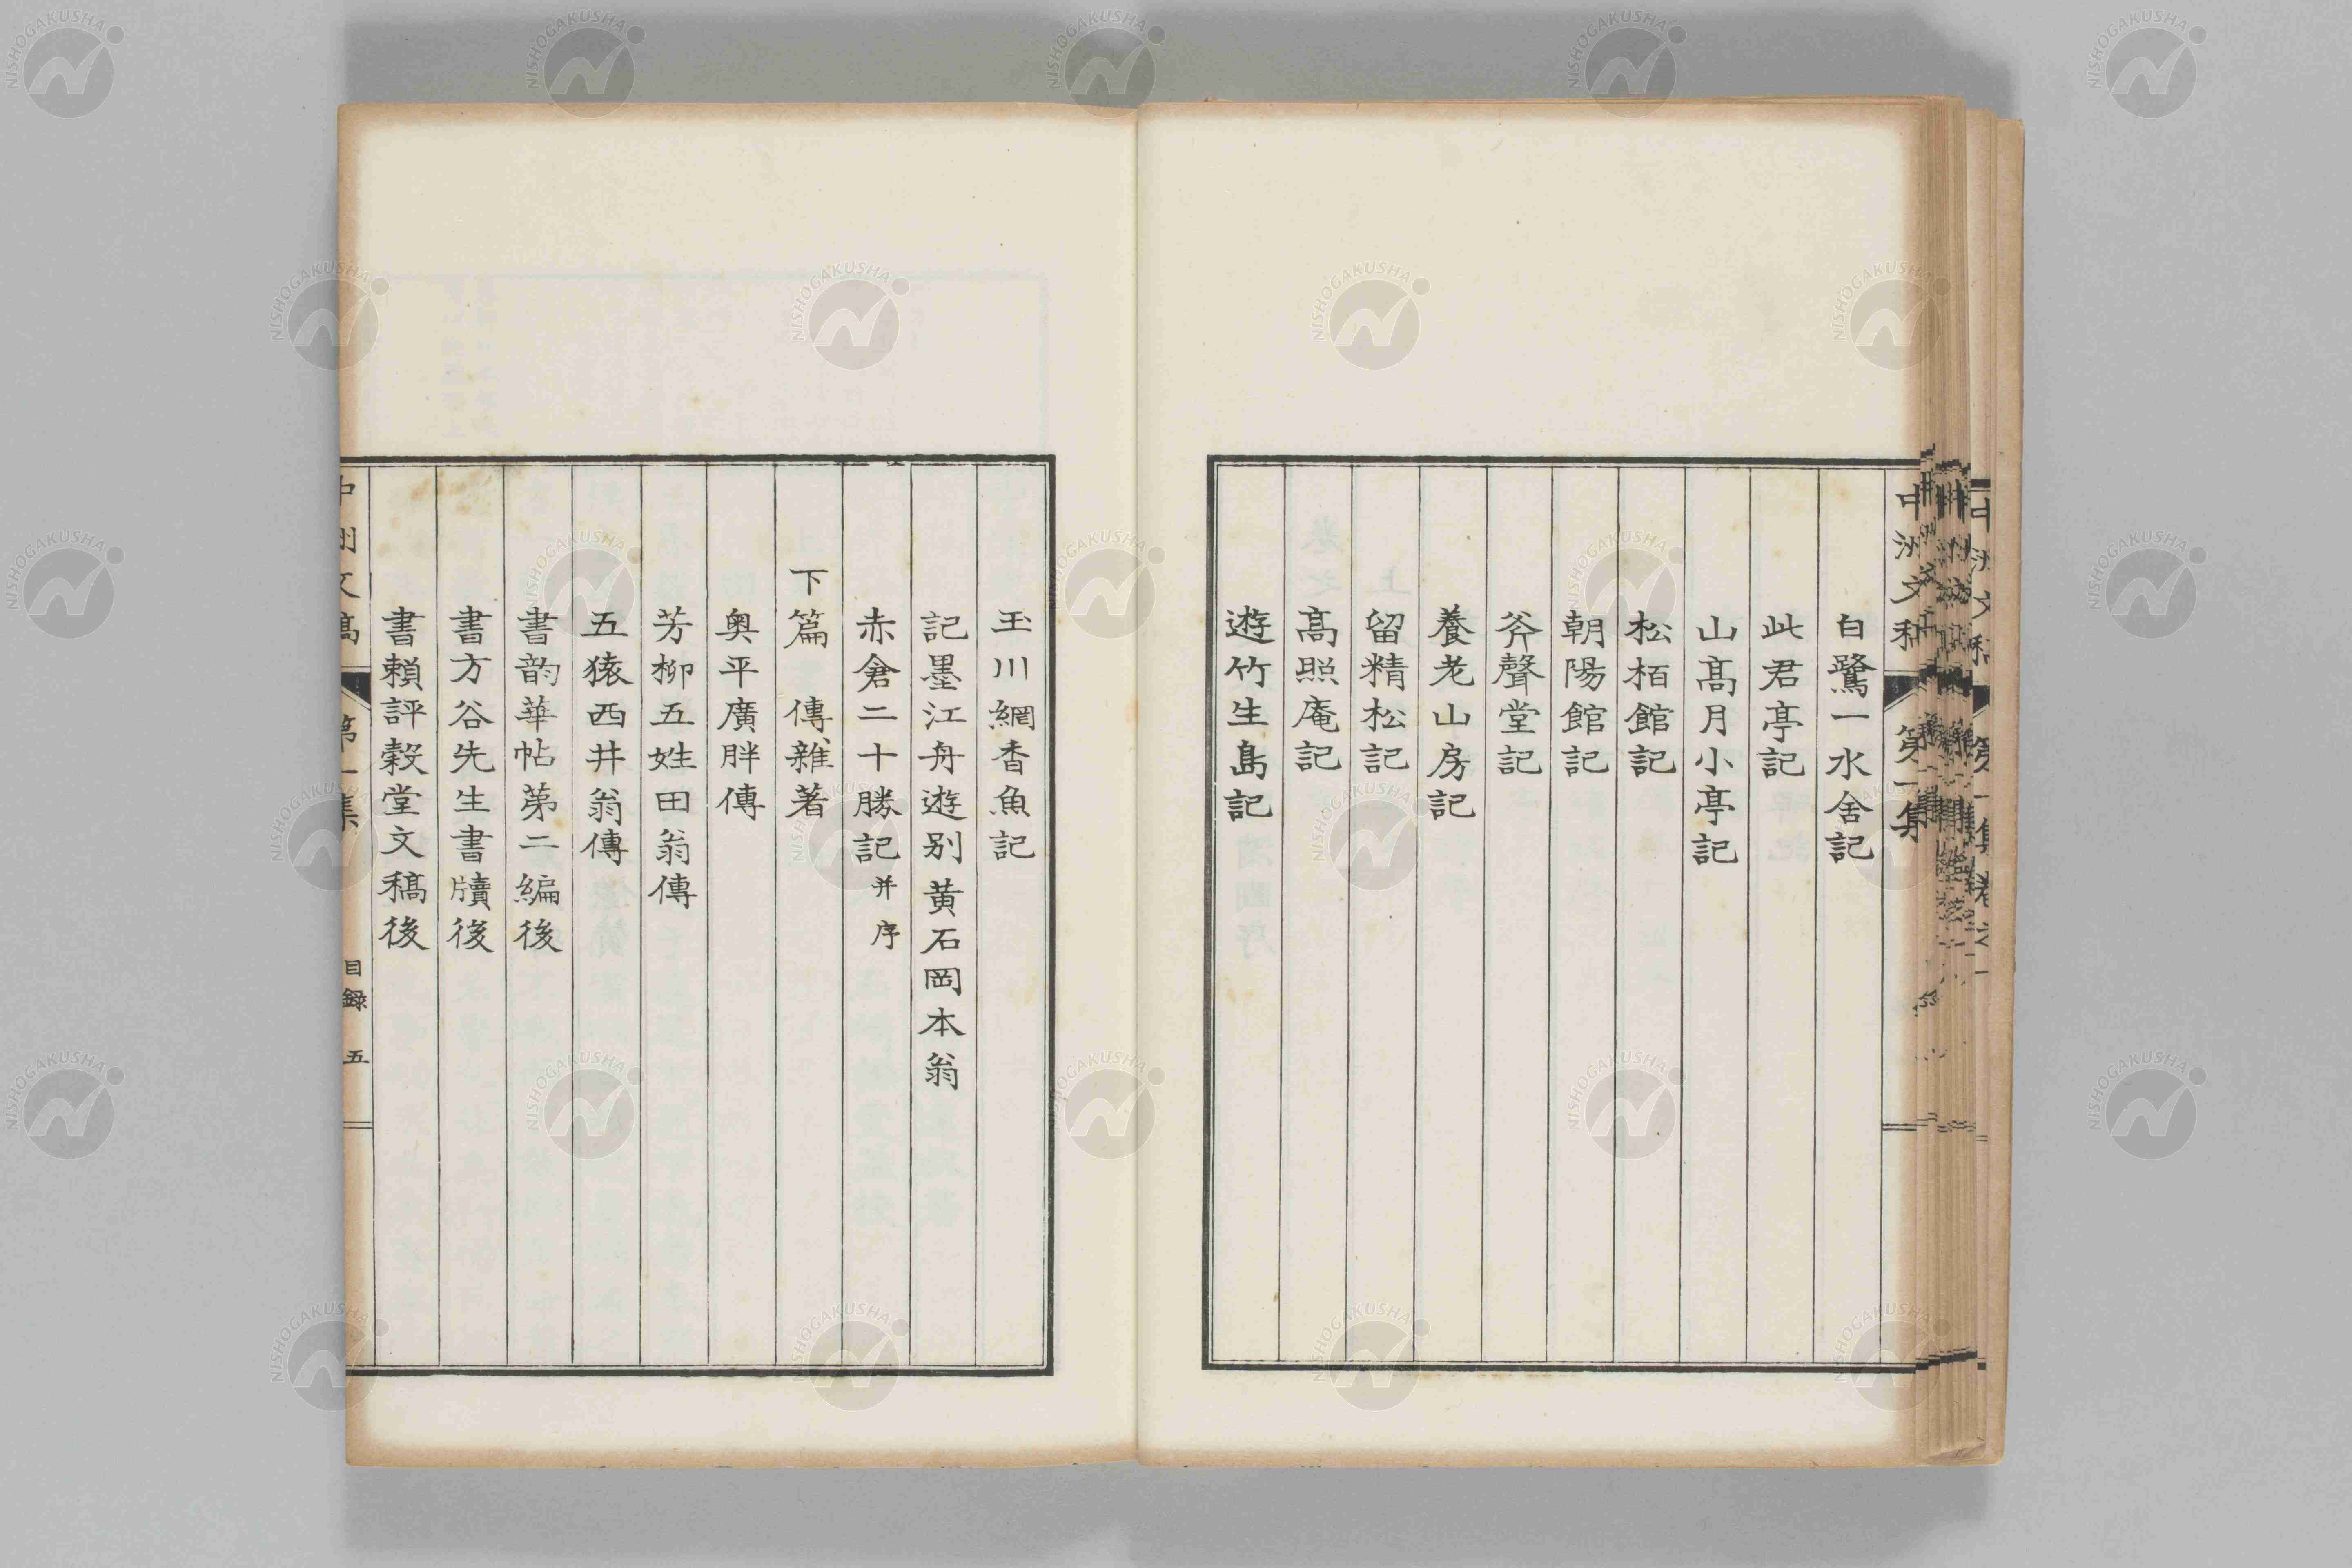 中洲文稿 第一集
白鷺一水舍記
此君亭記
山高月小亭記
松栢館記
朝陽館記
斧聲堂記
養老山房記
留精松記
高照庵記
遊竹生島記
玉川網香魚記
記墨江舟遊別黄石岡本翁
赤倉二十勝記并序
下篇 傳雜著
奥平廣胖傳
芳柳五姓田翁傳
五猿西井翁傳
書韵華帖第二編後
書方谷先生書牘後
書賴評穀堂文稿後
中洲文稿 第一集 目録 五
NISHOGAKUSHA